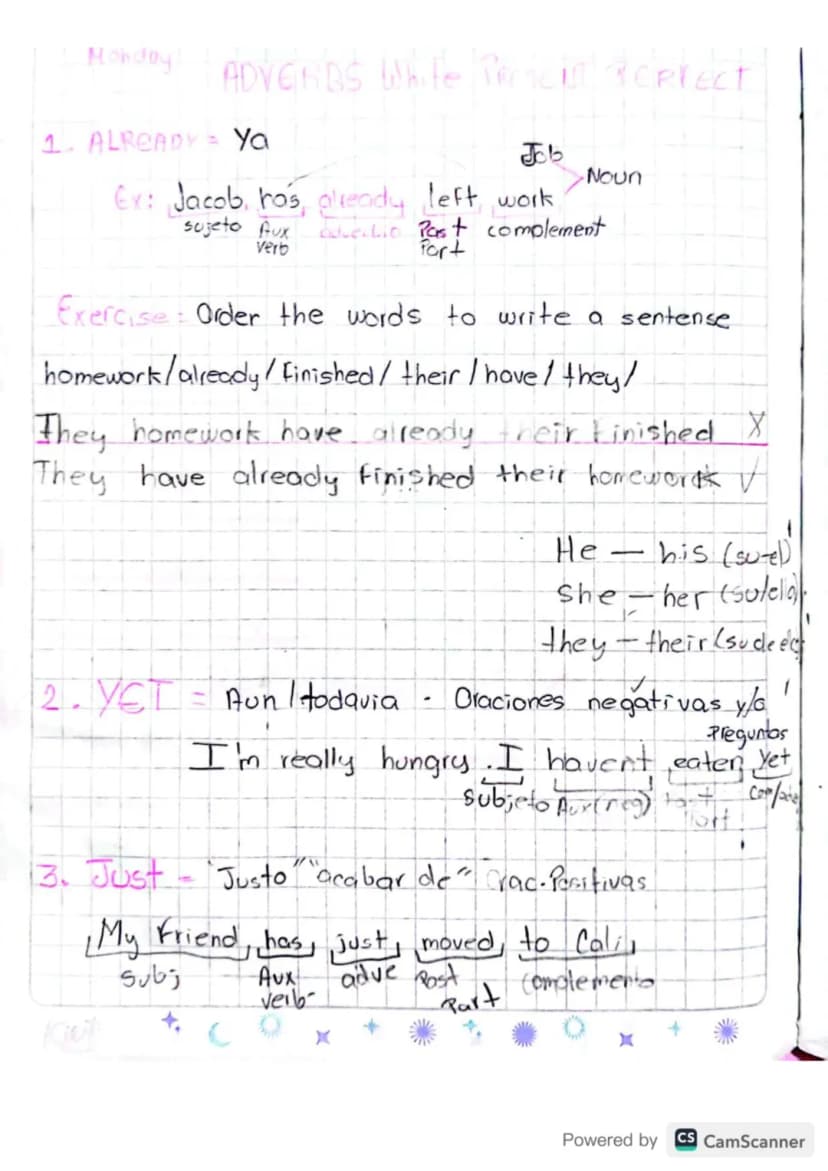 Monday
ADVERBS While Present Perfect
1. ALREADY = Ya
Job
Noun
Ex: Jacob has already left work
sujeto Aux verb adverbio Past Part complement
Exercise: Order the words to write a sentence
homework/already/finished/their/have/they/
They homework have already their finished X
They have already finished their homework ✓
He — his (su-el)
She — her (su/ella)
they — their (su de
2. YET = Aun/todavia - Oraciones negativas y/o
Preguntas
I'm really hungry. I havent eaten yet
Subjeto Aux(neg) Past Part
3. Just - "Justo" "acabar de" Orac. Positivas
My Friend has just moved to Cali
Subj Aux verb adve Past Part complemento
Powered by CS CamScanner